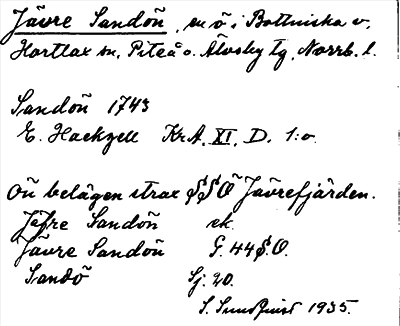 Jävre Sandön, en ö i Bottniska v.
Hortlax sn, Piteå o. Älvsby tg, Norrb. l.
Sandön 1743
E. Hackzell KrA. XI. D. 1:o.
Ön belägen strax SSO Jävrefjärden.
Jäfre Sandön ek.
Jävre Sandön G. 44 S.O.
Sandö Sj. 20.
S. Sundqvist 1935.